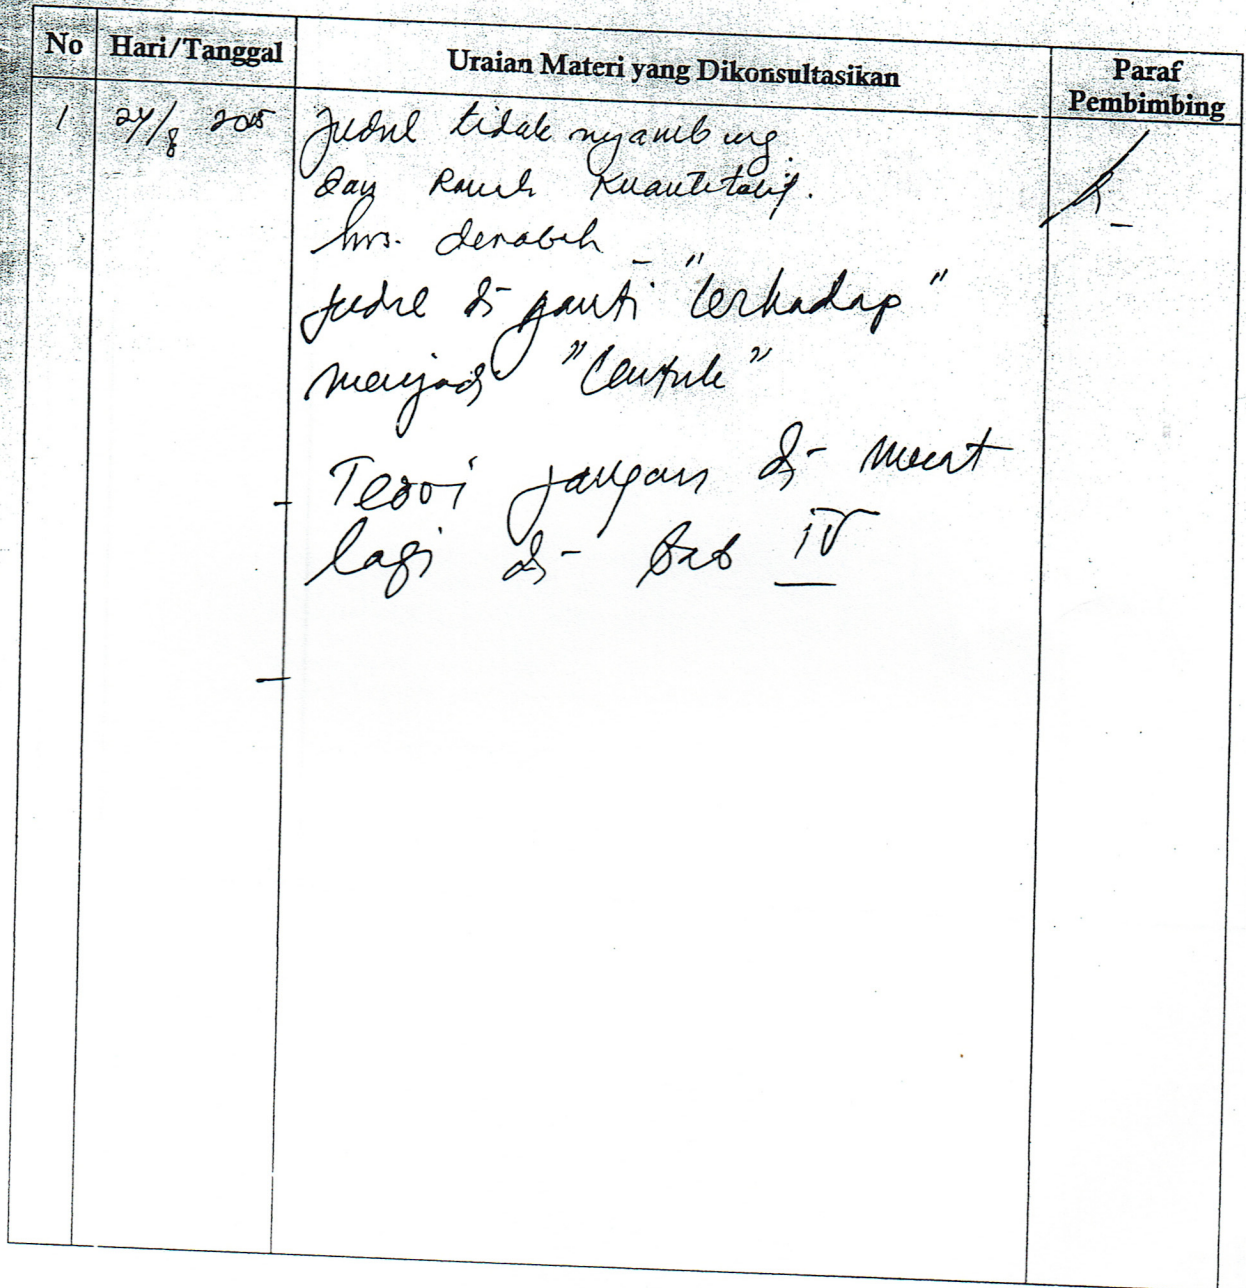 No Hari/Tanggal Uraian Materi yang Dikonsultasikan Paraf Pembimbing
1 24/8 2015 Judul tidak nyambung.
dan Kuantitatif.
hrs. dirobah
Judul di ganti "terhadap"
menjadi "Untuk"
Teori jangan di muat
lagi di Bab IV